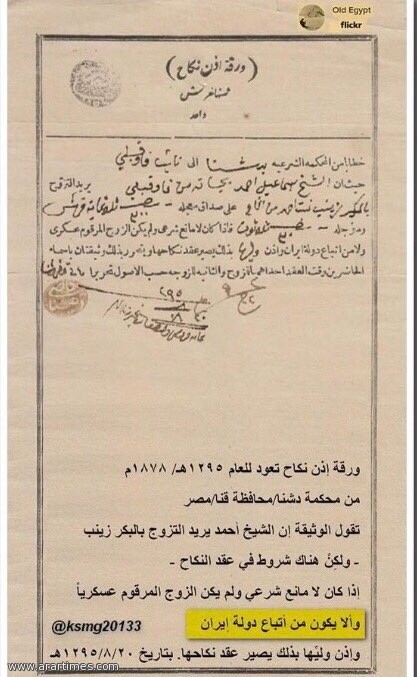 Old Egypt
flickr
(ورقة اذن نكاح)
واحد
خطابا من المحكمه الشرعيه بدشنا الى نائب فاو قبلي
حيث ان الشيخ اسماعيل احمد من فاو قبلي يريد التزوج
بالبكر زينب على صداق
ومؤجله فاذا كان لا مانع شرعي ولم يكن الزوج المرقوم عسكرى
ولا من اتباع دولة ايران واذن وليها بذلك يصير عقد نكاحها ويتحرر بذلك وثيقتان باسماء
الحاضرين وقت العقد احداهم للزوج والثانيه للزوجه حسب الاصول تحريرا
٢٩٥
ورقة إذن نكاح تعود للعام ١٢٩٥هـ/ ١٨٧٨م
من محكمة دشنا/محافظة قنا/مصر
تقول الوثيقة إن الشيخ أحمد يريد التزوج بالبكر زينب
- ولكنَّ هناك شروط في عقد النكاح -
إذا كان لا مانع شرعي ولم يكن الزوج المرقوم عسكرياً
وألا يكون من أتباع دولة إيران
@ksmg20133
وإذن وليّها بذلك يصير عقد نكاحها. بتاريخ ١٢٩٥/٨/٢٠هـ
www.arartimes.com